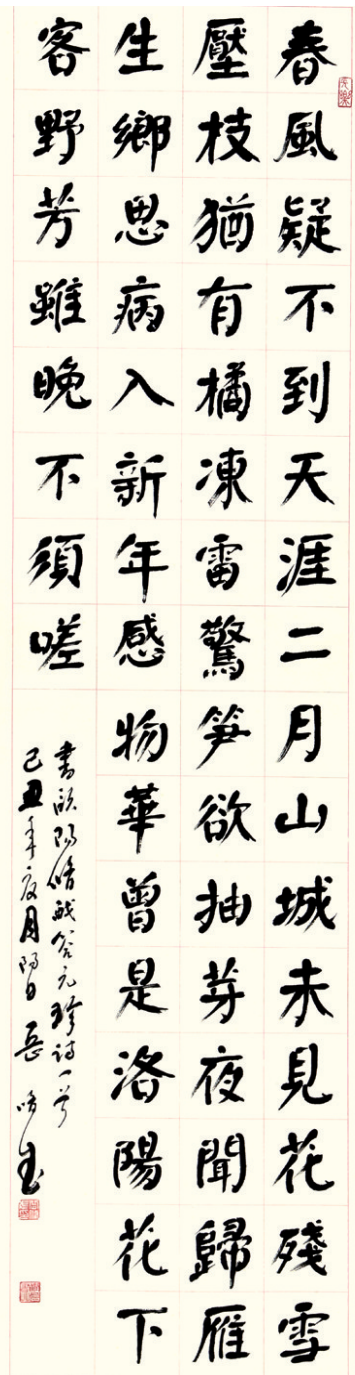 春風疑不到天涯二月山城未見花殘雪
壓枝猶有橘凍雷驚笋欲抽芽夜聞歸雁
生鄉思病入新年感物華曾是洛陽花下
客野芳雖晚不須嗟
書欧陽脩戲答元珍詩一首
己丑年月日